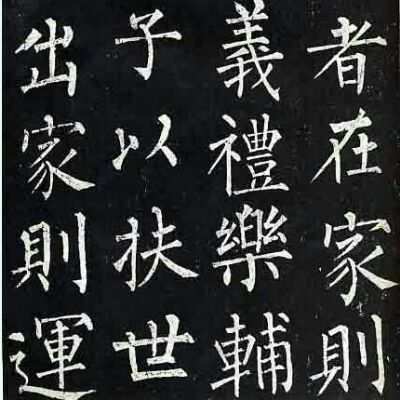 者在家則
義禮樂輔
子以扶世
出家則運